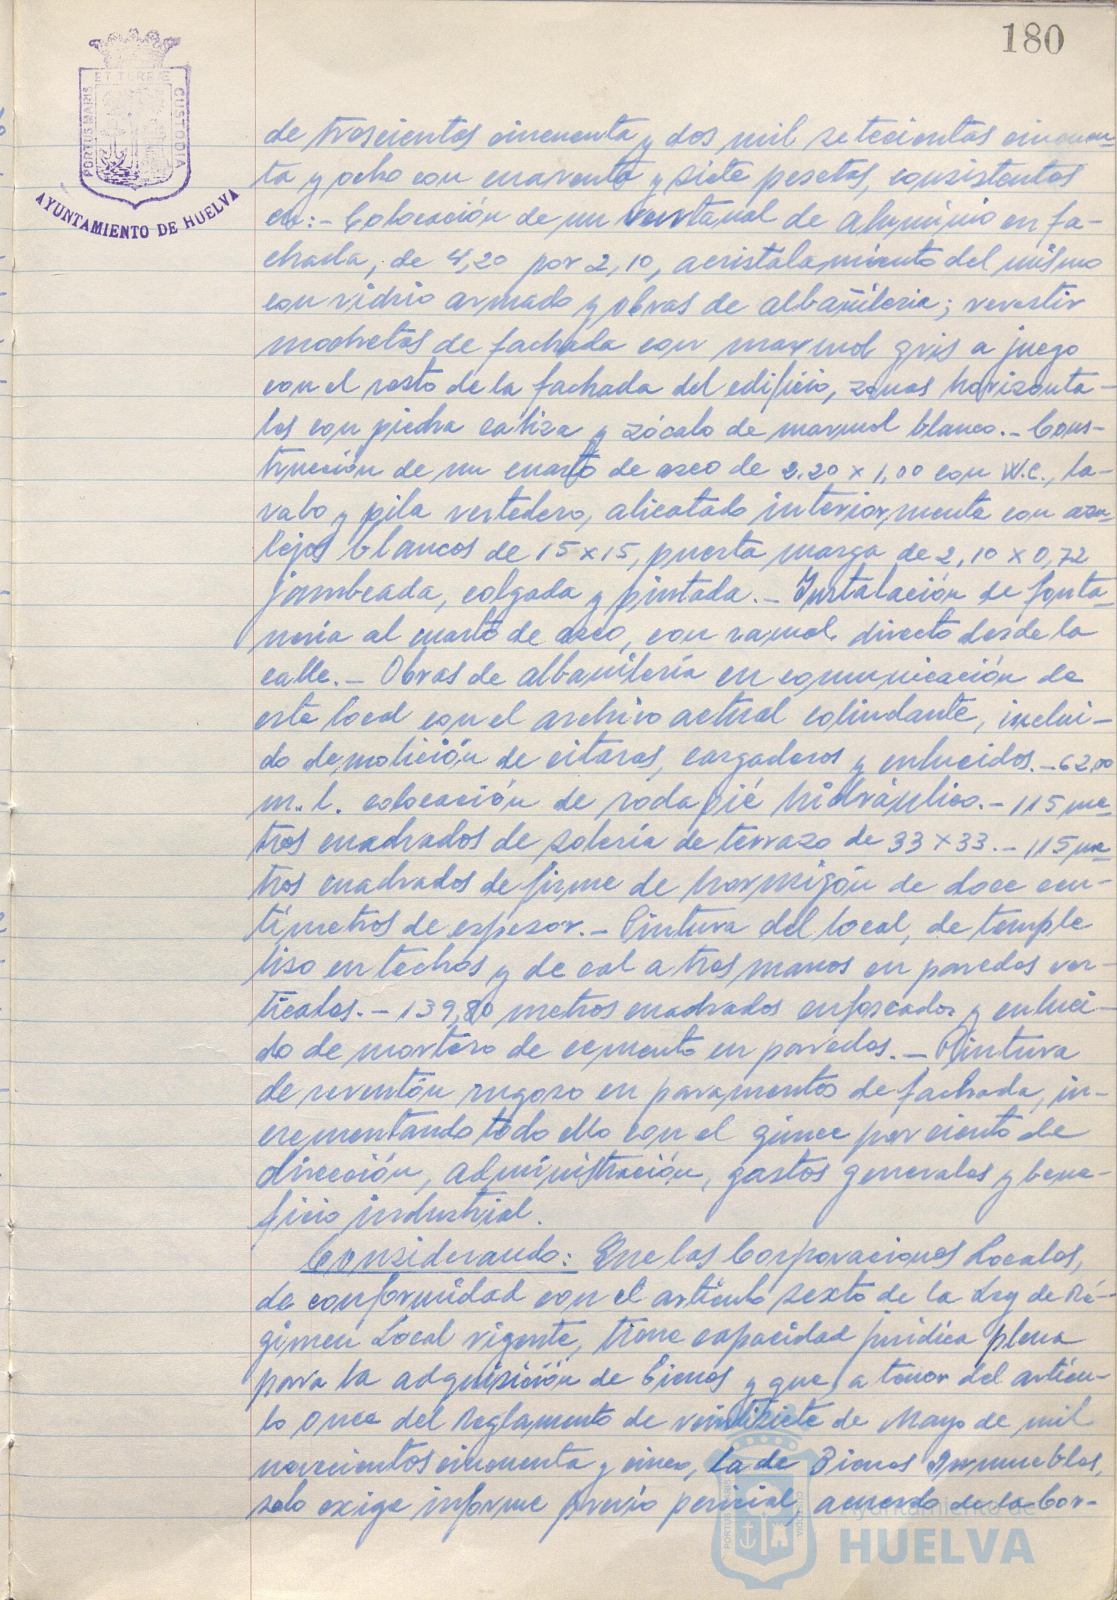 180
PORTUS MARIS ET TERRE CUSTODIA
AYUNTAMIENTO DE HUELVA
de trescientas cincuenta y dos mil setecientas cincuen-
ta y ocho con cuarenta y siete pesetas, consistentes
en:- Colocación de un ventanal de aluminio en fa-
chada, de 4,20 por 2,10, acristalamiento del mismo
con vidrio armado y obras de albañileria; revestir
mochetas de fachada con marmol gris a juego
con el resto de la fachada del edificio, zonas horizonta-
les con piedra caliza y zócalo de marmol blanco.- Cons-
trucción de un cuarto de aseo de 2.20 x 1,00 con W.C., la-
vabo y pila vertedero, alicatado interiormente con azu-
lejos blancos de 15 x 15, puerta marga de 2,10 x 0,72
jambeada, colgada y pintada.- Instalación de fonta-
nería al cuarto de aseo, con ramal directo desde la
calle.- Obras de albanilería en comunicación de
este local con el archivo actual colindante, inclui-
do demolición de citaras, cargaderos y enlucidos.- 62,00
m.l. colocación de rodapié hidráulico.- 115 me-
tros cuadrados de solería de terrazo de 33 x 33.- 115 me-
tros cuadrados de firme de hormigón de doce cen-
tímetros de espesor.- Pintura del local, de temple
liso en techos y de cal a tres manos en paredes ver-
ticales.- 139,80 metros cuadrados enfoscados y enluci-
do de mortero de cemento en paredes.- Pintura
de reventón rugoso en paramentos de fachada, in-
crementando todo ello con el quince por ciento de
dirección, administración, gastos generales y bene-
ficio industrial.
Considerando: Que las Corporaciones Locales,
de conformidad con el artículo sexto de la Ley de Ré-
gimen Local vigente, tiene capacidad jurídica plena
para la adquisición de bienes y que, a tenor del artícu-
lo once del Reglamento de veintisiete de Mayo de mil
novecientos cincuenta y cinco, la de Bienes Inmuebles,
solo exige informe previo pericial, acuerdo de la Cor-
Ayuntamiento de
HUELVA